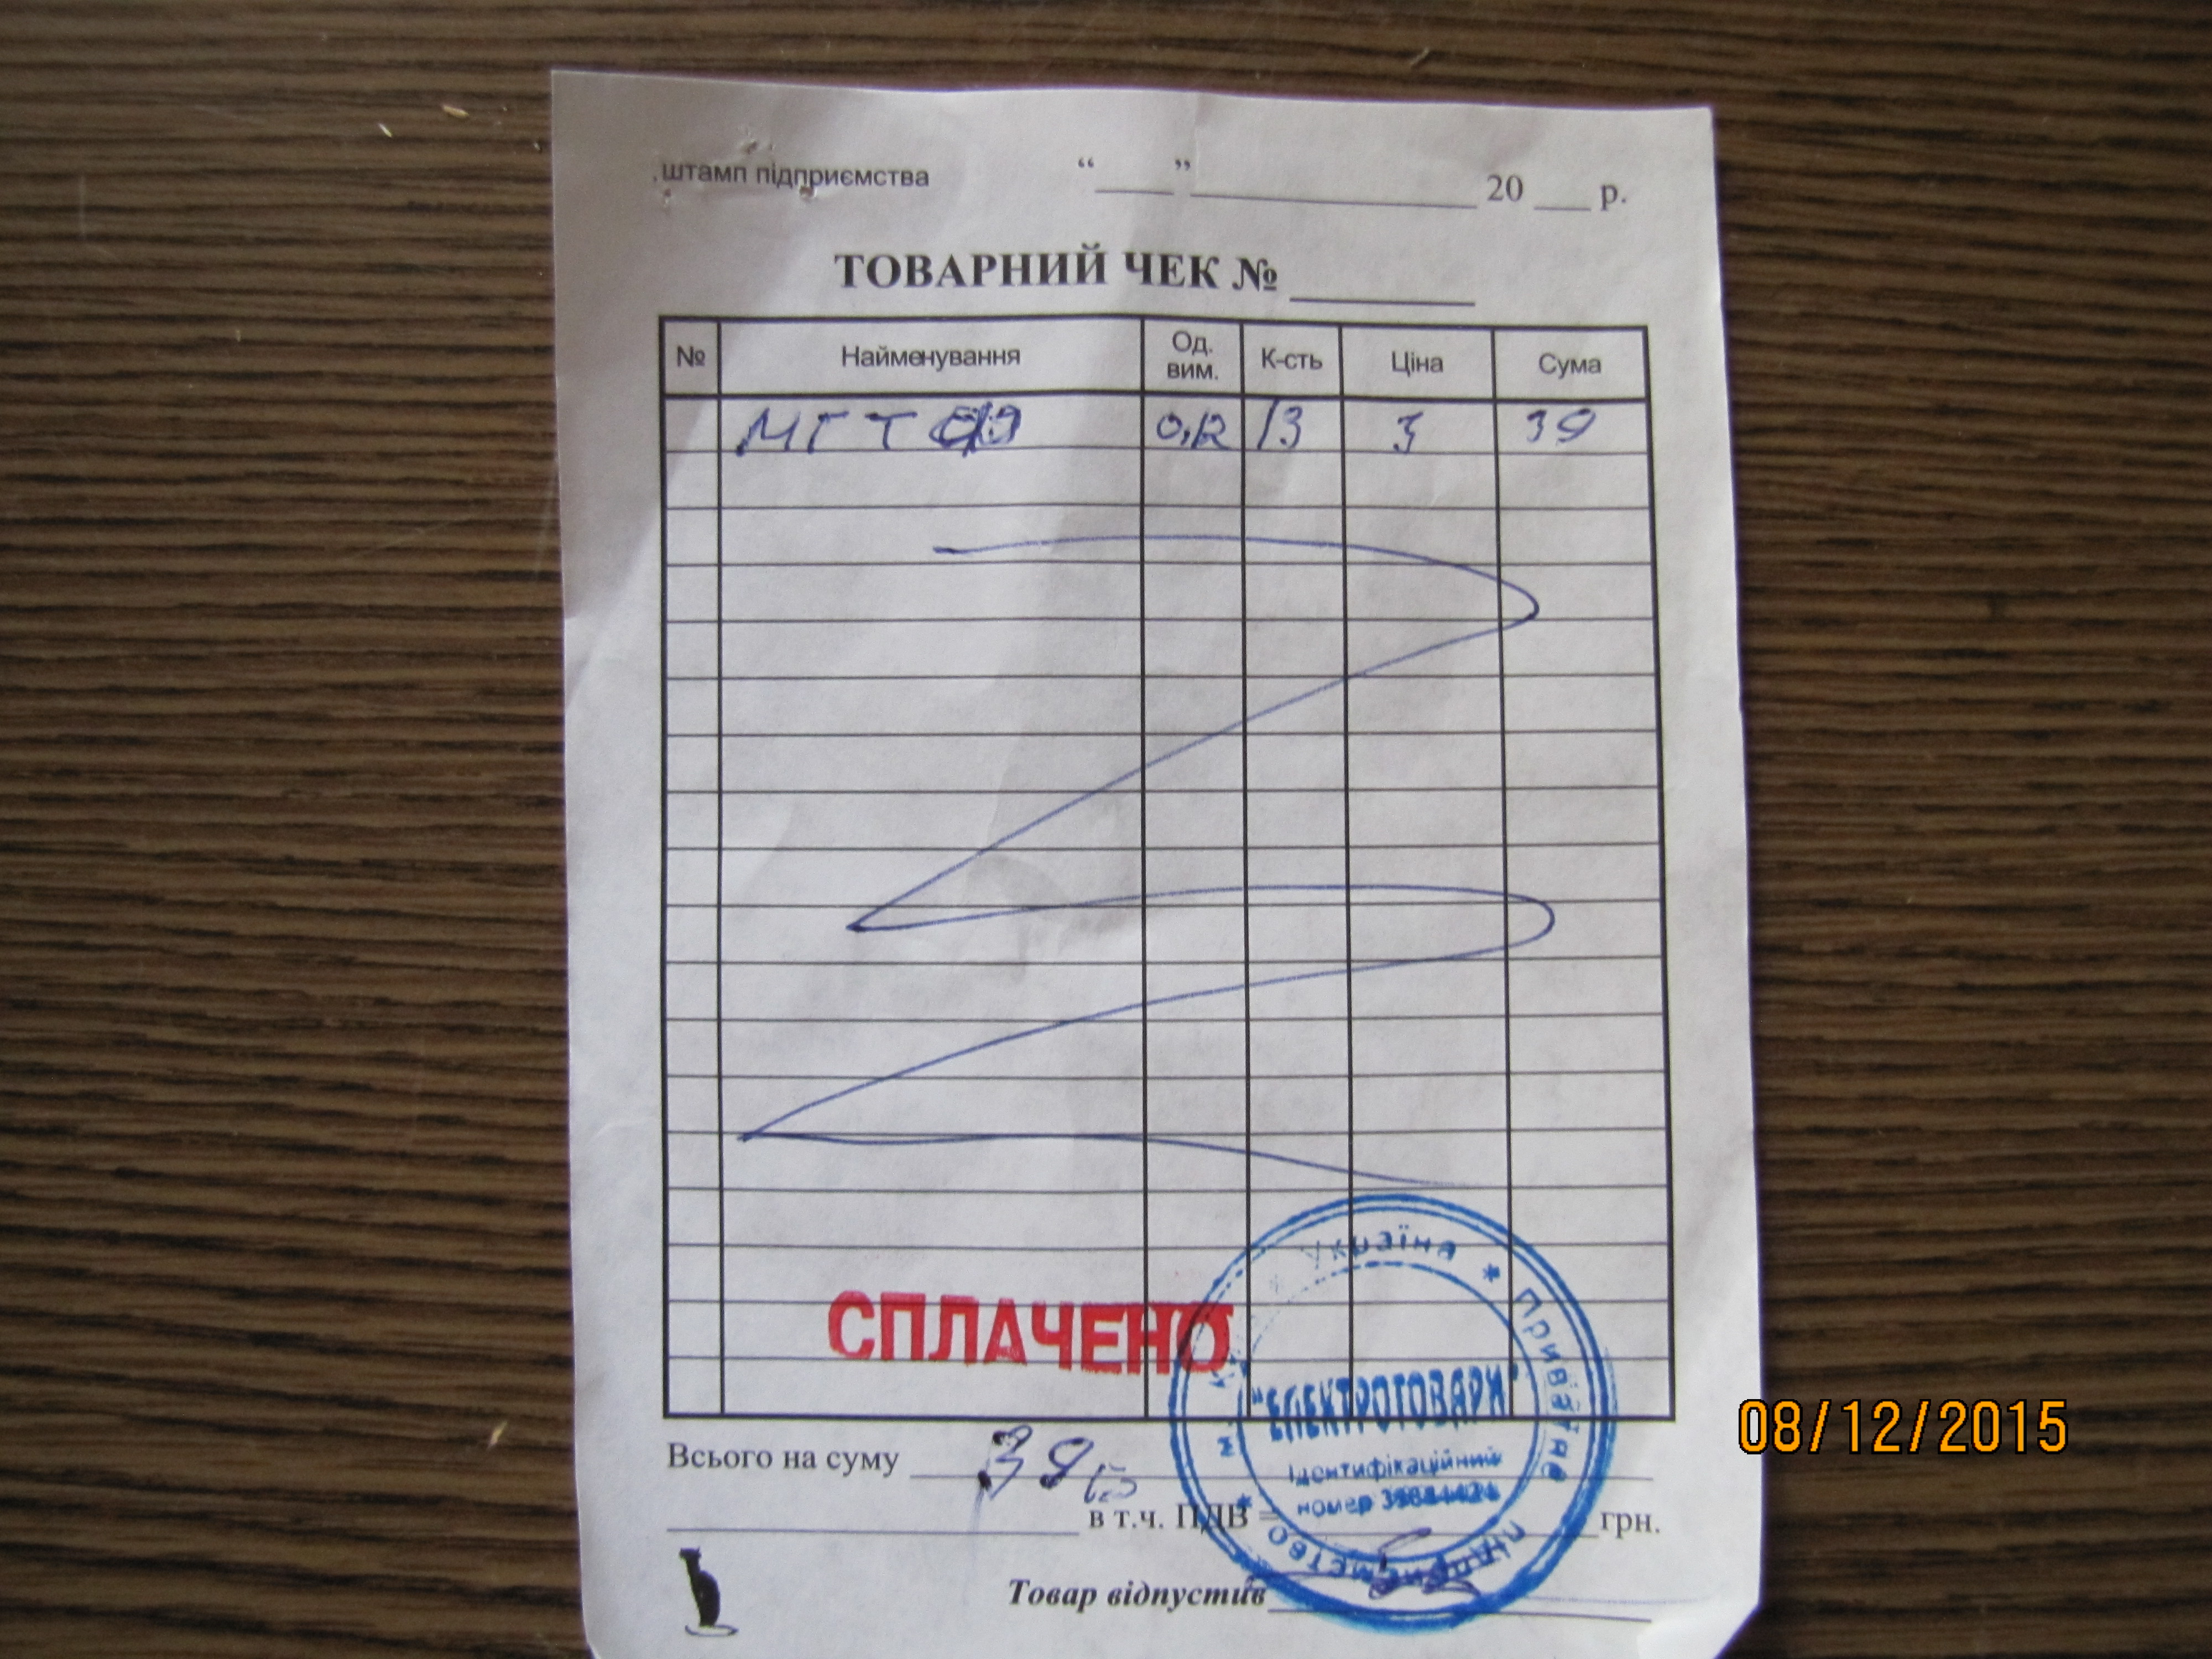 штамп підприємства “___” ____________ 20 ___ р.
ТОВАРНИЙ ЧЕК № ________
№ Найменування Од. вим. К-сть Ціна Сума
МГТФ 0,12 13 3 39
СПЛАЧЕНО
Україна * Приватне підприємство * м. К
"ЕЛЕКТРОТОВАРИ"
Ідентифікаційний
номер
Всього на суму 39
в т.ч. ПДВ = грн.
Товар відпустив
08/12/2015